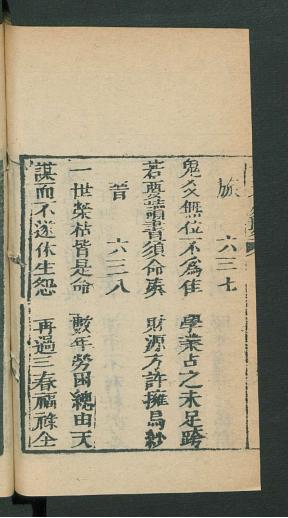 旅 六三七
鬼爻無位不爲佳 學業占之未足誇
若要讀書須命 財源方許擁烏紗
晋 六三八
一世榮枯皆是命 數年勞困總由天
謀而不遂休生怨 再過三春福祿全